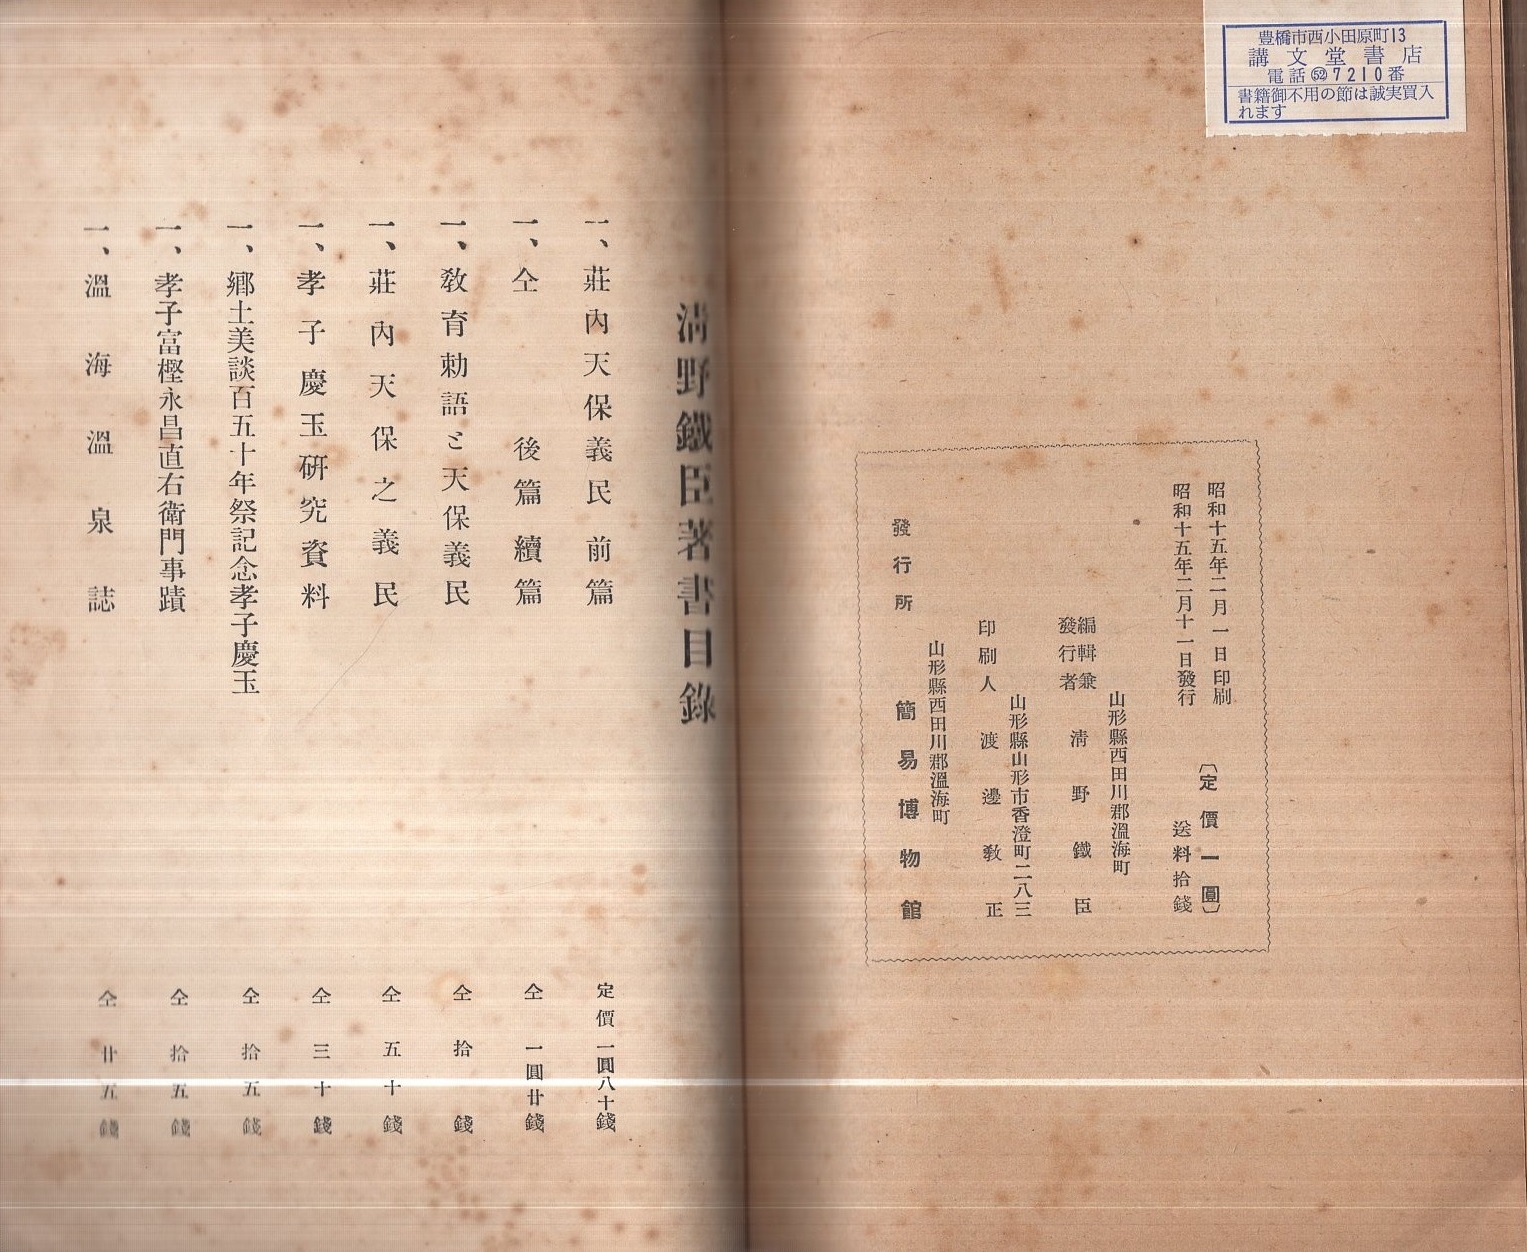 豊橋市西小田原町13
講文堂書店
電話㊾7210番
書籍御不用の節は誠実買入
れます
昭和十五年二月一日印刷
昭和十五年二月十一日發行
〔定價一圓〕
送料拾錢
山形縣西田川郡溫海町
編輯兼
發行者 淸野鐵臣
山形縣山形市香澄町二八三
印刷人 渡邊敎正
山形縣西田川郡溫海町
發行所 簡易博物館
淸野鐵臣著書目錄
一、莊內天保義民前篇 定價一圓八十錢
一、仝 後篇續篇 仝 一圓廿錢
一、敎育勅語と天保義民 仝 拾錢
一、莊內天保之義民 仝 五十錢
一、孝子慶玉硏究資料 仝 三十錢
一、鄕土美談百五十年祭記念孝子慶玉 仝 拾五錢
一、孝子富樫永昌直右衛門事蹟 仝 拾五錢
一、溫海溫泉誌 仝 廿五錢